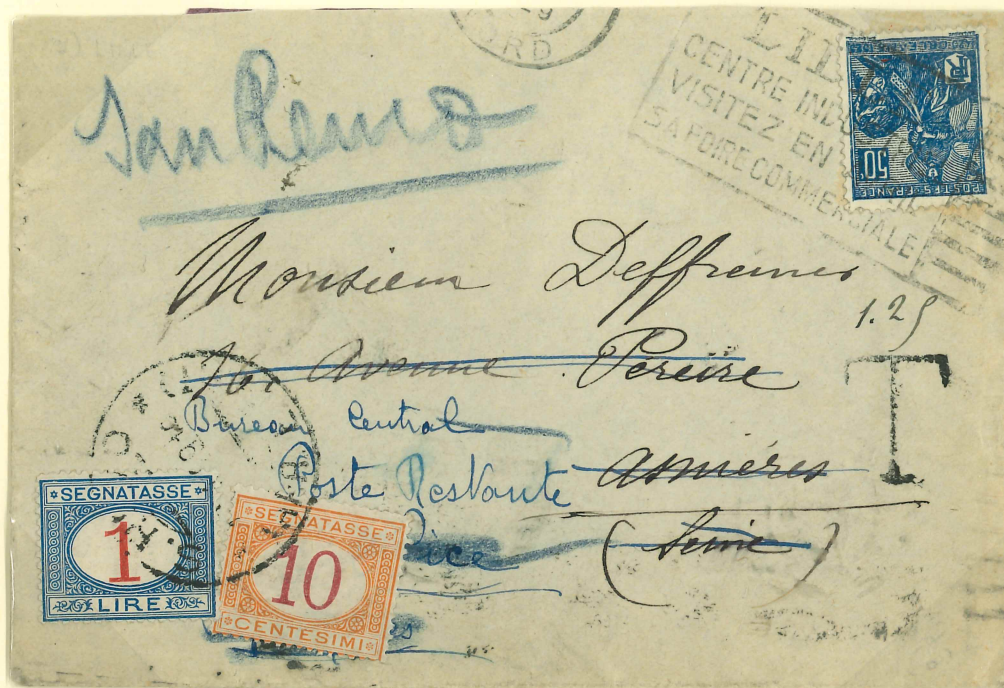 29
ORD
San Remo
LIL
CENTRE INDU
VISITEZ EN
SA FOIRE COMMERCIALE
RF
50c
POSTES FRANCE
Monsieur
1.25
16 Avenue Pereire
T
Bureau Central
Poste Restante
Asnières
Nice
(Seine)
SEGNATASSE
1
LIRE
SEGNATASSE
10
CENTESIMI